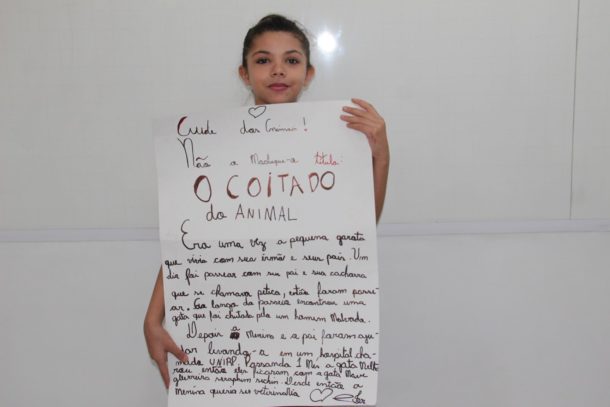 Cuide dos Animais!
Não a Machuque-a titulo:
O COITADO
do ANIMAL
Era uma vez a pequena garota
que vivia com sua irmã e seus pais. Um
dia foi passear com seu pai e sua cachorra
que se chamava pitica, então foram passe-
ar. Ao longo do passeio encontrou uma
gata que foi chutada pelo um homem Malvado.
Depois a Menina e o pai foram aju-
dar levando-a em um hospital cha-
mado UNIRP, Passando 1 Mes a gata Melho
rou então eles ficaram com a gata
guerreira Desde então a
Menina queria ser veterinaria